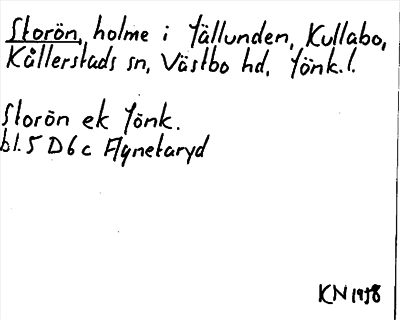 Storön, holme i Jällunden, Kullabo,
Kållerstads sn, Västbo hd, Jönk.l.
Storön ek Jönk.
bl. 5 D 6 c Flynetaryd
KN 1958